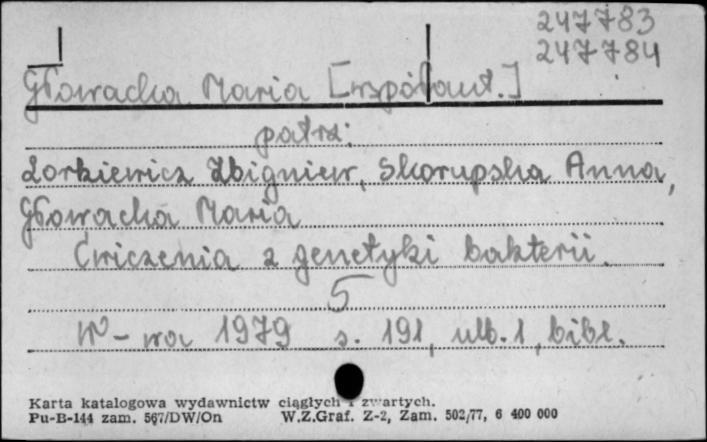 247783
247784
Głowacka Maria [współaut.]
patrz:
Lorkiewicz Zbigniew, Skorupska Anna,
Głowacka Maria
Ćwiczenia z genetyki bakterii.
5
W-wa 1979 s. 191, ulb. 1, bibl.
Karta katalogowa wydawnictw ciągłych i zwartych.
Pu-B-144 zam. 567/DW/On W.Z.Graf. Z-2, Zam. 502/77, 6 400 000